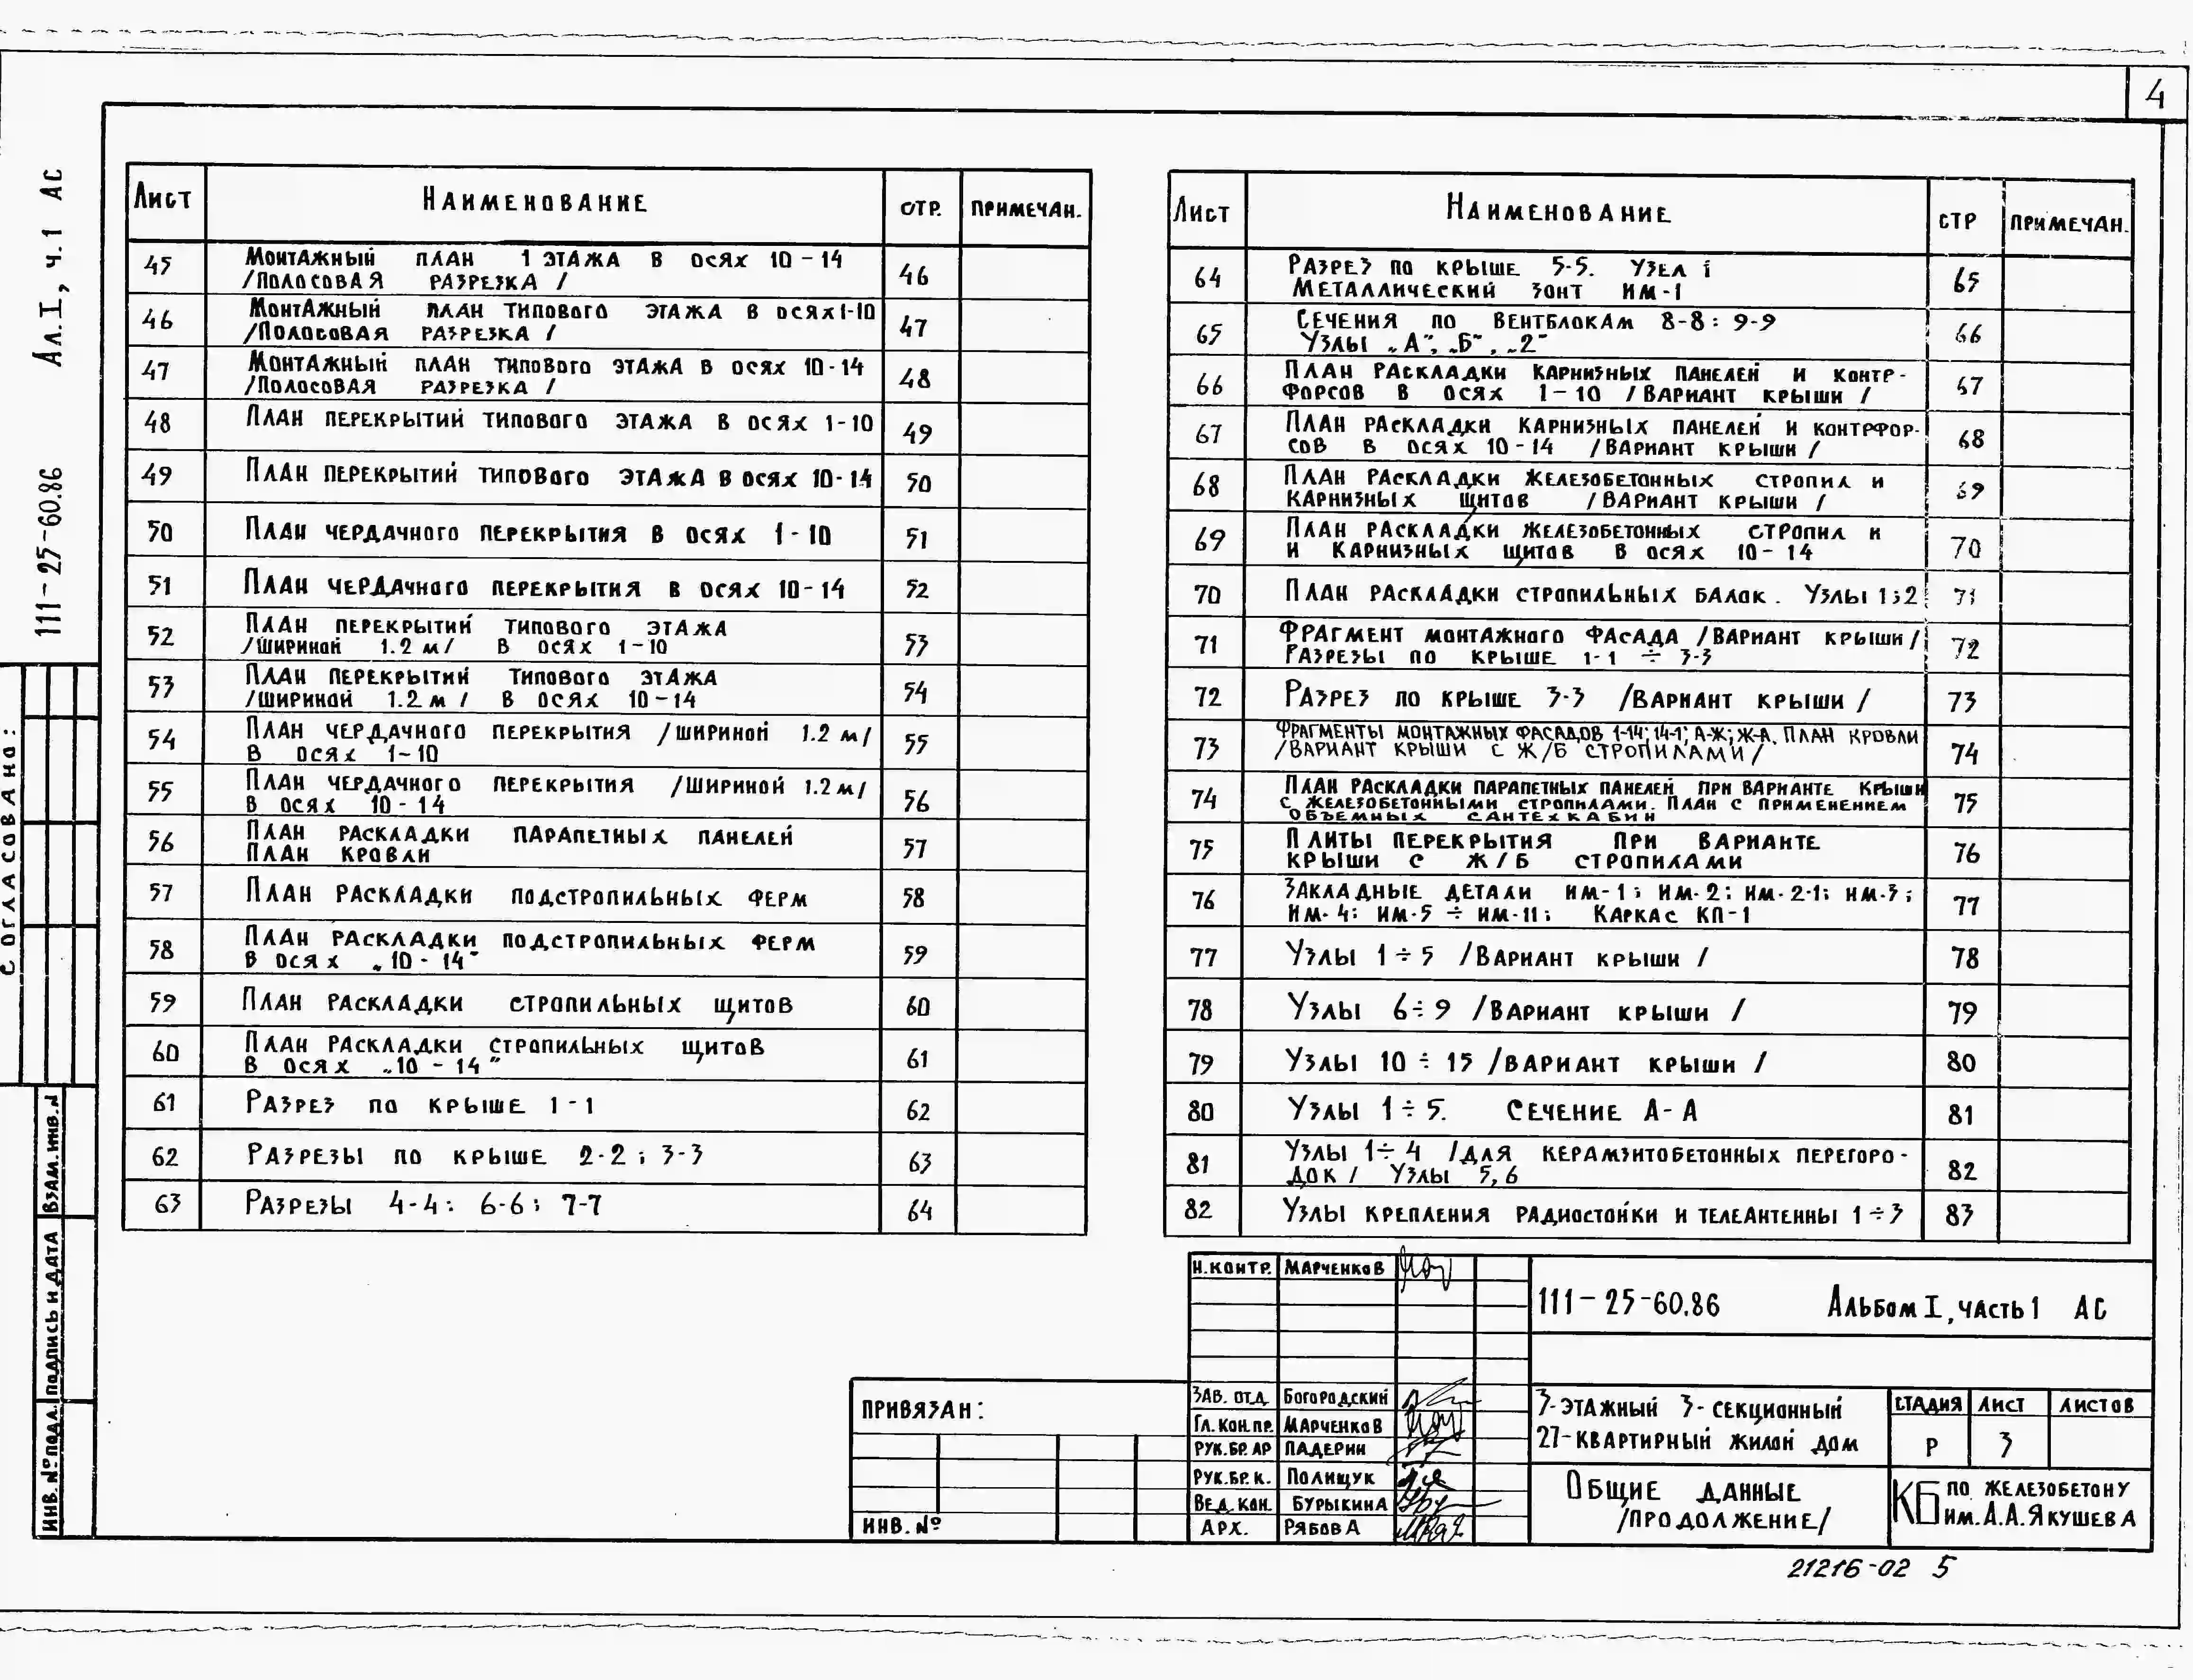 4
Ал.I, ч.1 АС
111-25-60.86
Согласовано:
Взам.инв.№
Подпись и дата
Инв.№ подл.
Лист Наименование стр. примечан.
45 Монтажный план 1 этажа в осях 10-14 46
/Полосовая разрезка/
46 Монтажный план типового этажа в осях 1-10 47
/Полосовая разрезка/
47 Монтажный план типового этажа в осях 10-14 48
/Полосовая разрезка/
48 План перекрытий типового этажа в осях 1-10 49
49 План перекрытий типового этажа в осях 10-14 50
50 План чердачного перекрытия в осях 1-10 51
51 План чердачного перекрытия в осях 10-14 52
52 План перекрытий типового этажа 53
/шириной 1.2 м/ в осях 1-10
53 План перекрытий типового этажа 54
/шириной 1.2 м/ в осях 10-14
54 План чердачного перекрытия /шириной 1.2 м/ 55
в осях 1-10
55 План чердачного перекрытия /шириной 1.2 м/ 56
в осях 10-14
56 План раскладки парапетных панелей 57
План кровли
57 План раскладки подстропильных ферм 58
58 План раскладки подстропильных ферм 59
в осях „10-14"
59 План раскладки стропильных щитов 60
60 План раскладки стропильных щитов 61
в осях „10-14"
61 Разрез по крыше 1-1 62
62 Разрезы по крыше 2-2; 3-3 63
63 Разрезы 4-4; 6-6; 7-7 64
Лист Наименование стр примечан.
64 Разрез по крыше 5-5. Узел 1 65
Металлический зонт ИМ-1
65 Сечения по вентблокам 8-8; 9-9 66
Узлы „А", „Б", „2"
66 План раскладки карнизных панелей и контр- 67
форсов в осях 1-10 /Вариант крыши/
67 План раскладки карнизных панелей и контрфор- 68
сов в осях 10-14 /Вариант крыши/
68 План раскладки железобетонных стропил и 69
карнизных щитов /Вариант крыши/
69 План раскладки железобетонных стропил и 70
и карнизных щитов в осях 10-14
70 План раскладки стропильных балок. Узлы 1;2 71
71 Фрагмент монтажного фасада /Вариант крыши/ 72
Разрезы по крыше 1-1 ÷ 3-3
72 Разрез по крыше 3-3 /Вариант крыши/ 73
73 Фрагменты монтажных фасадов 1-14; 14-1; А-Ж; Ж-А. План кровли 74
/Вариант крыши с ж/б стропилами/
74 План раскладки парапетных панелей при варианте крыши 75
с железобетонными стропилами. План с применением
объемных сантехкабин
75 Плиты перекрытия при варианте 76
крыши с ж/б стропилами
76 Закладные детали ИМ-1; ИМ-2; ИМ-2-1; ИМ-3; 77
ИМ-4; ИМ-5 ÷ ИМ-11; Каркас КП-1
77 Узлы 1÷5 /Вариант крыши/ 78
78 Узлы 6÷9 /Вариант крыши/ 79
79 Узлы 10÷15 /Вариант крыши/ 80
80 Узлы 1÷5. Сечение А-А 81
81 Узлы 1÷4 /для керамзитобетонных перегоро- 82
док/ Узлы 5,6
82 Узлы крепления радиостойки и телеантенны 1÷3 83
Н.контр. Марченков
Зав. отд. Богородский
Гл.кон.пр. Марченков
Рук.бр.ар Падерин
Рук.бр.к. Полищук
Вед.кон. Бурыкина
Арх. Рябова
Привязан:
Инв.№
111-25-60.86 Альбом I, часть 1 АС
3-этажный 3-секционный
27-квартирный жилой дом
Стадия Лист Листов
Р 3
Общие данные
/продолжение/
КБ по железобетону
им. А.А.Якушева
21216-02 5